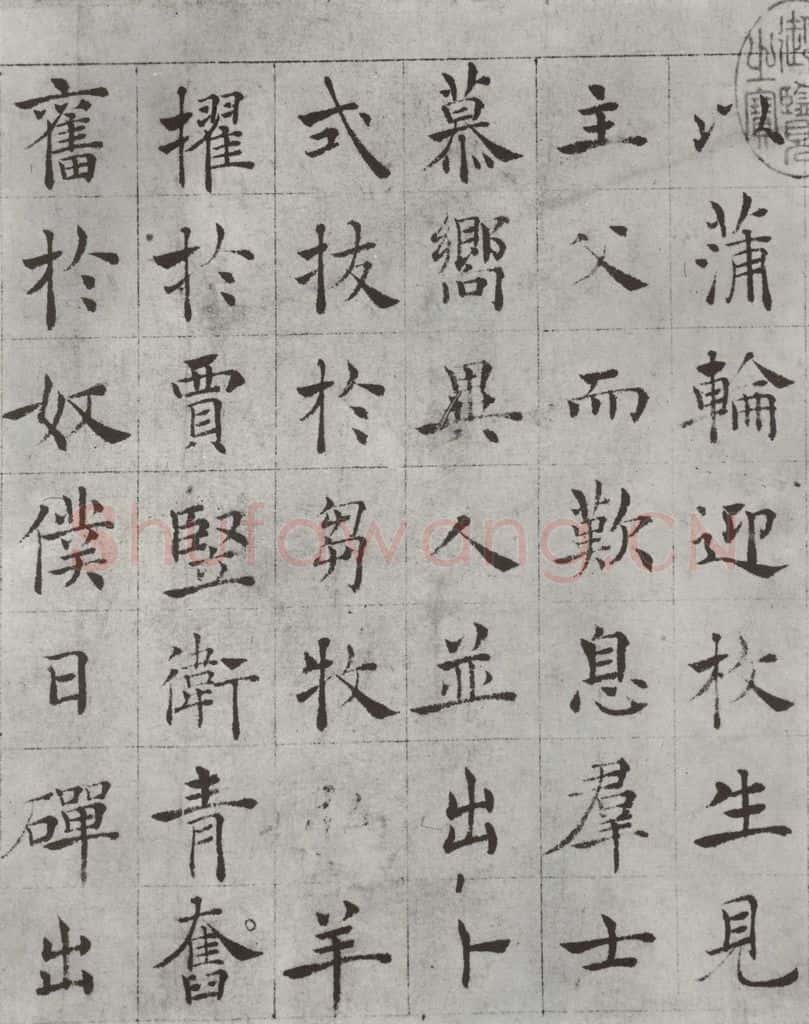 以蒲輪迎枚生見
主父而歎息羣士
慕嚮異人並出卜
式拔於芻牧羊
擢於賈豎衛青奮
奮於奴僕日磾出
Shufawang.CN